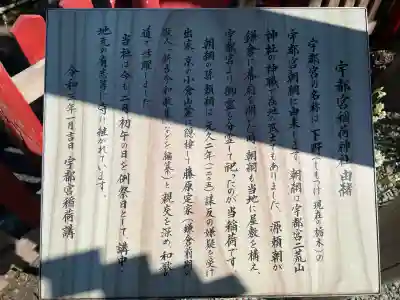 宇都宮稲荷神社由緒
宇都宮の名称は下野(しもつけ 現在の栃木)の
宇都宮朝綱に由来します。朝綱は宇都宮二荒山
神社の神職で在地武士でもありました。源頼朝が
鎌倉に幕府を開いた時、朝綱が当地に屋敷を構え
宇都宮より御霊を分霊して祀ったのが当稲荷です。
朝綱の孫頼綱は元久二年(一二〇五)謀反の嫌疑を受け
出家、京の小倉山麓に隠棲して藤原定家(鎌倉前期
歌人・新古今和歌集などを編纂)と親交を深め、和歌の
道で活躍しました。
当社は今も二月初午の日を例祭日として講中と
地元の有志等に守り継がれています。
令和 年一月吉日 宇都宮稲荷講